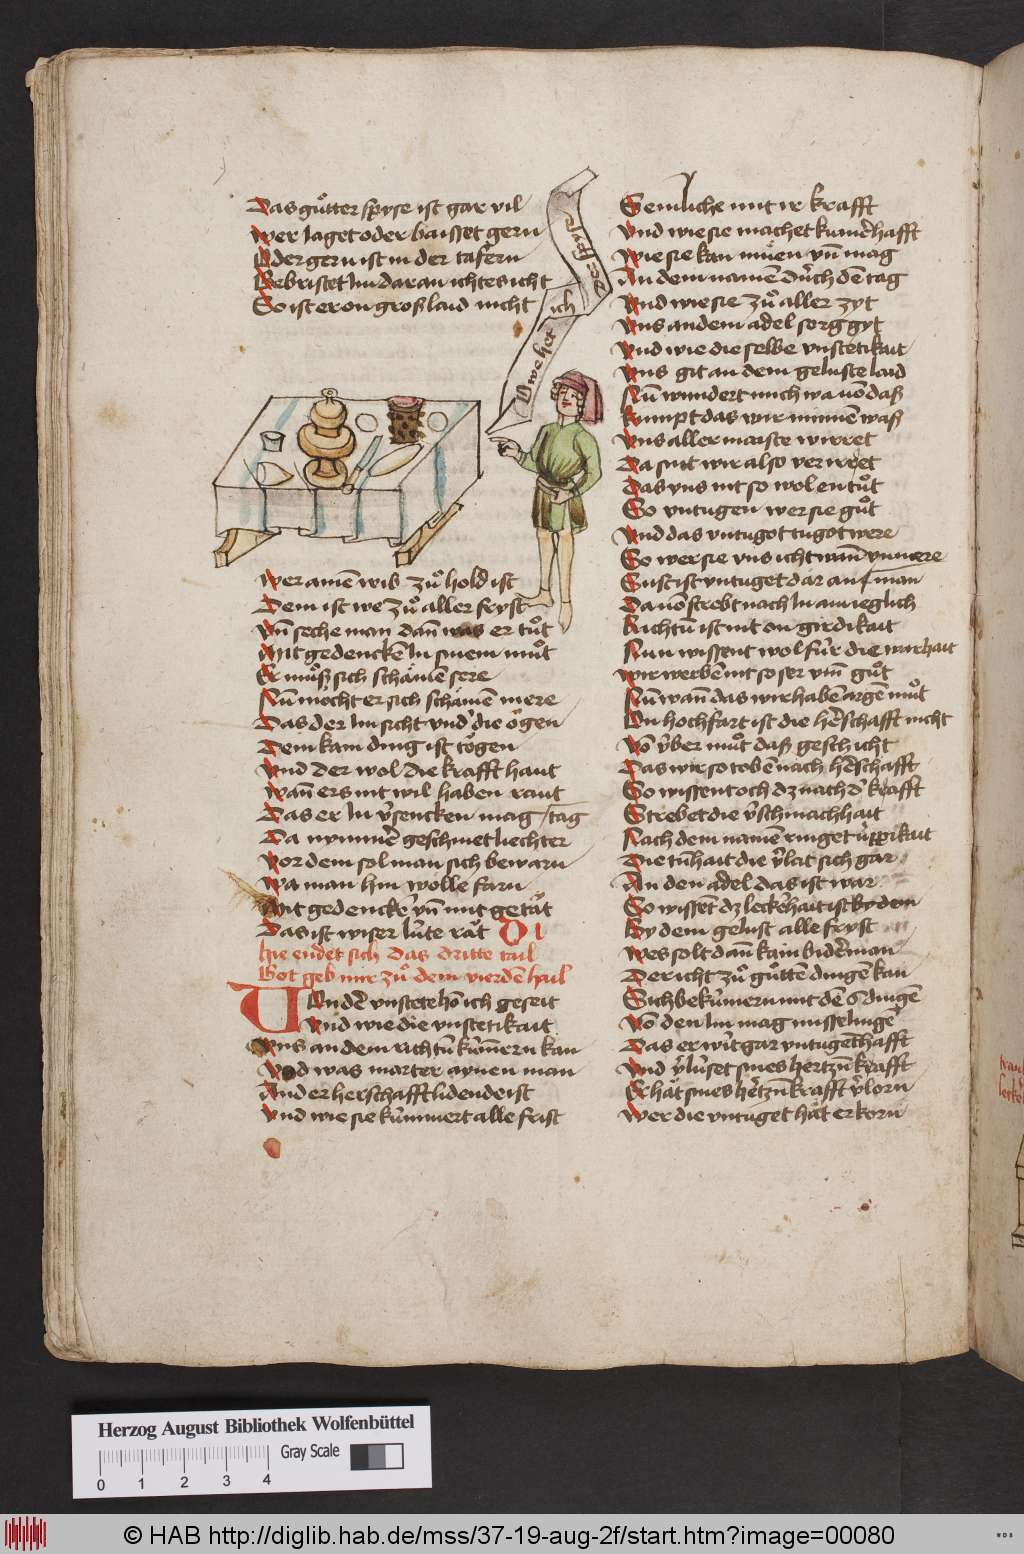 Das guͦtter spyse ist gar vil
Wer jaget oder baisset gern
Oder gern ist in der tafern
Gebristet Im daran ichtesicht
So ist er on groß laid nicht
Owe het ich der spyse
Wer ainē wib zuͦ hold ist
Dem ist we zuͦ aller fryst
Vn̄ seche man dañ was er tuͦt
Mit gedenckē In sinem muͦt
Er muͦß sich schämē sere
Nū mocht er sich schamē mere
Das der Im sicht vnd die ögen
Dem kain ding ist tögen
Vnd der wol die krafft haut
Wañ er s nit wil haben raut
Das er In v̓sencken mag /tag
Da nymm̄e geschinet liechter
Vor dem sol man sich bewarn
Wa man hin wölle farn
Mit gedenckē vn̄ mit getät
Das ist wiser lüte rät
hie endet sich das dritte tail
Got geb mir zuͦ dem vierdē hail
Von der vnstete hō ich geseit
Vnd wie die vnstetikait
Vns an dem richtū kūmern kan
Vnd was marter aynen man
Ander herschafft lidende ist
Vnd wie sie kümmert alle frist
Semliche mit ir krafft
Vnd wie sie machet kumerhafft
Wie sie kan müen vn̄ mag
An dem namen durch den tag
Vnd wie sie zuͦ aller zyt
Vns an dem adel sorg gyt
Vnd wie die selbe vnstetikait
Vns git an dem geluste laid
Nū wundert mich wa vō daß
kumpt das wir minnē waß
Vns aller maiste wirret
Da sint wir also verirret
Das vns nit so wol entuͦt
So vntugen wer sie guͦt
Vnd das vntugot tugot were
So wer sie vns icht wañ vnmere
Sust ist vntuget dar an / man
Da vō strebt nach Im ain ieglich
Richtū ist nit on girdikait
Nun wissent wol für die warhait
wir werbē nit so ser vm̄ guͦt
Nū wañ das wir habē argē muͦt
On hochfart ist die herschafft nicht
Vō v̓ber muͦt daß geschicht
Das wir so tobē nach herschafft
So wissent och dz nach d' krafft
Strebet die v̓schmachhait
Nach dem namē ringet üppikait
Die tūhait die v̓lat sich gar
An den adel das ist war
So wissēt dz leckerhait ist by dem
By dem gelust alle fryst
Wes solt dañ kain biderman
Der icht zuͦ guͦttē dingē kan
Sich bekümern mit dē s dingē
Vō den Im mag misselingē
Das er wirt gar vntugēthafft
Vnd v̓lüset sines hertzē krafft
Er hät sines hertzē krafft v̓lorn
Wer die vntuget hät erkorn
Herzog August Bibliothek Wolfenbüttel
Gray Scale
0 1 2 3 4
© HAB http://diglib.hab.de/mss/37-19-aug-2f/start.htm?image=00080